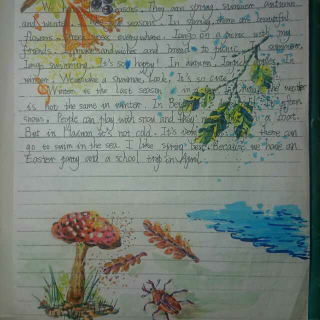 We have seasons. They are spring summer autumn
and winter. season. In spring, there are beautiful
flowers everywhere. I go on a picnic with my
friends. I make sandwiches and bread to picnic. summer,
I go swimming. It's so happy! In autumn, I pick apples. In
winter We make a snowman, look, It's so cute
Winter is the last season in a year. the weather
is not the same in winter. In Bei often
snows. People can play with snow and they a coat.
But in Hainan it's not cold. It's there can
go to swim in the sea. I like spring best. Because we have an
Easter party and a school trip in April.